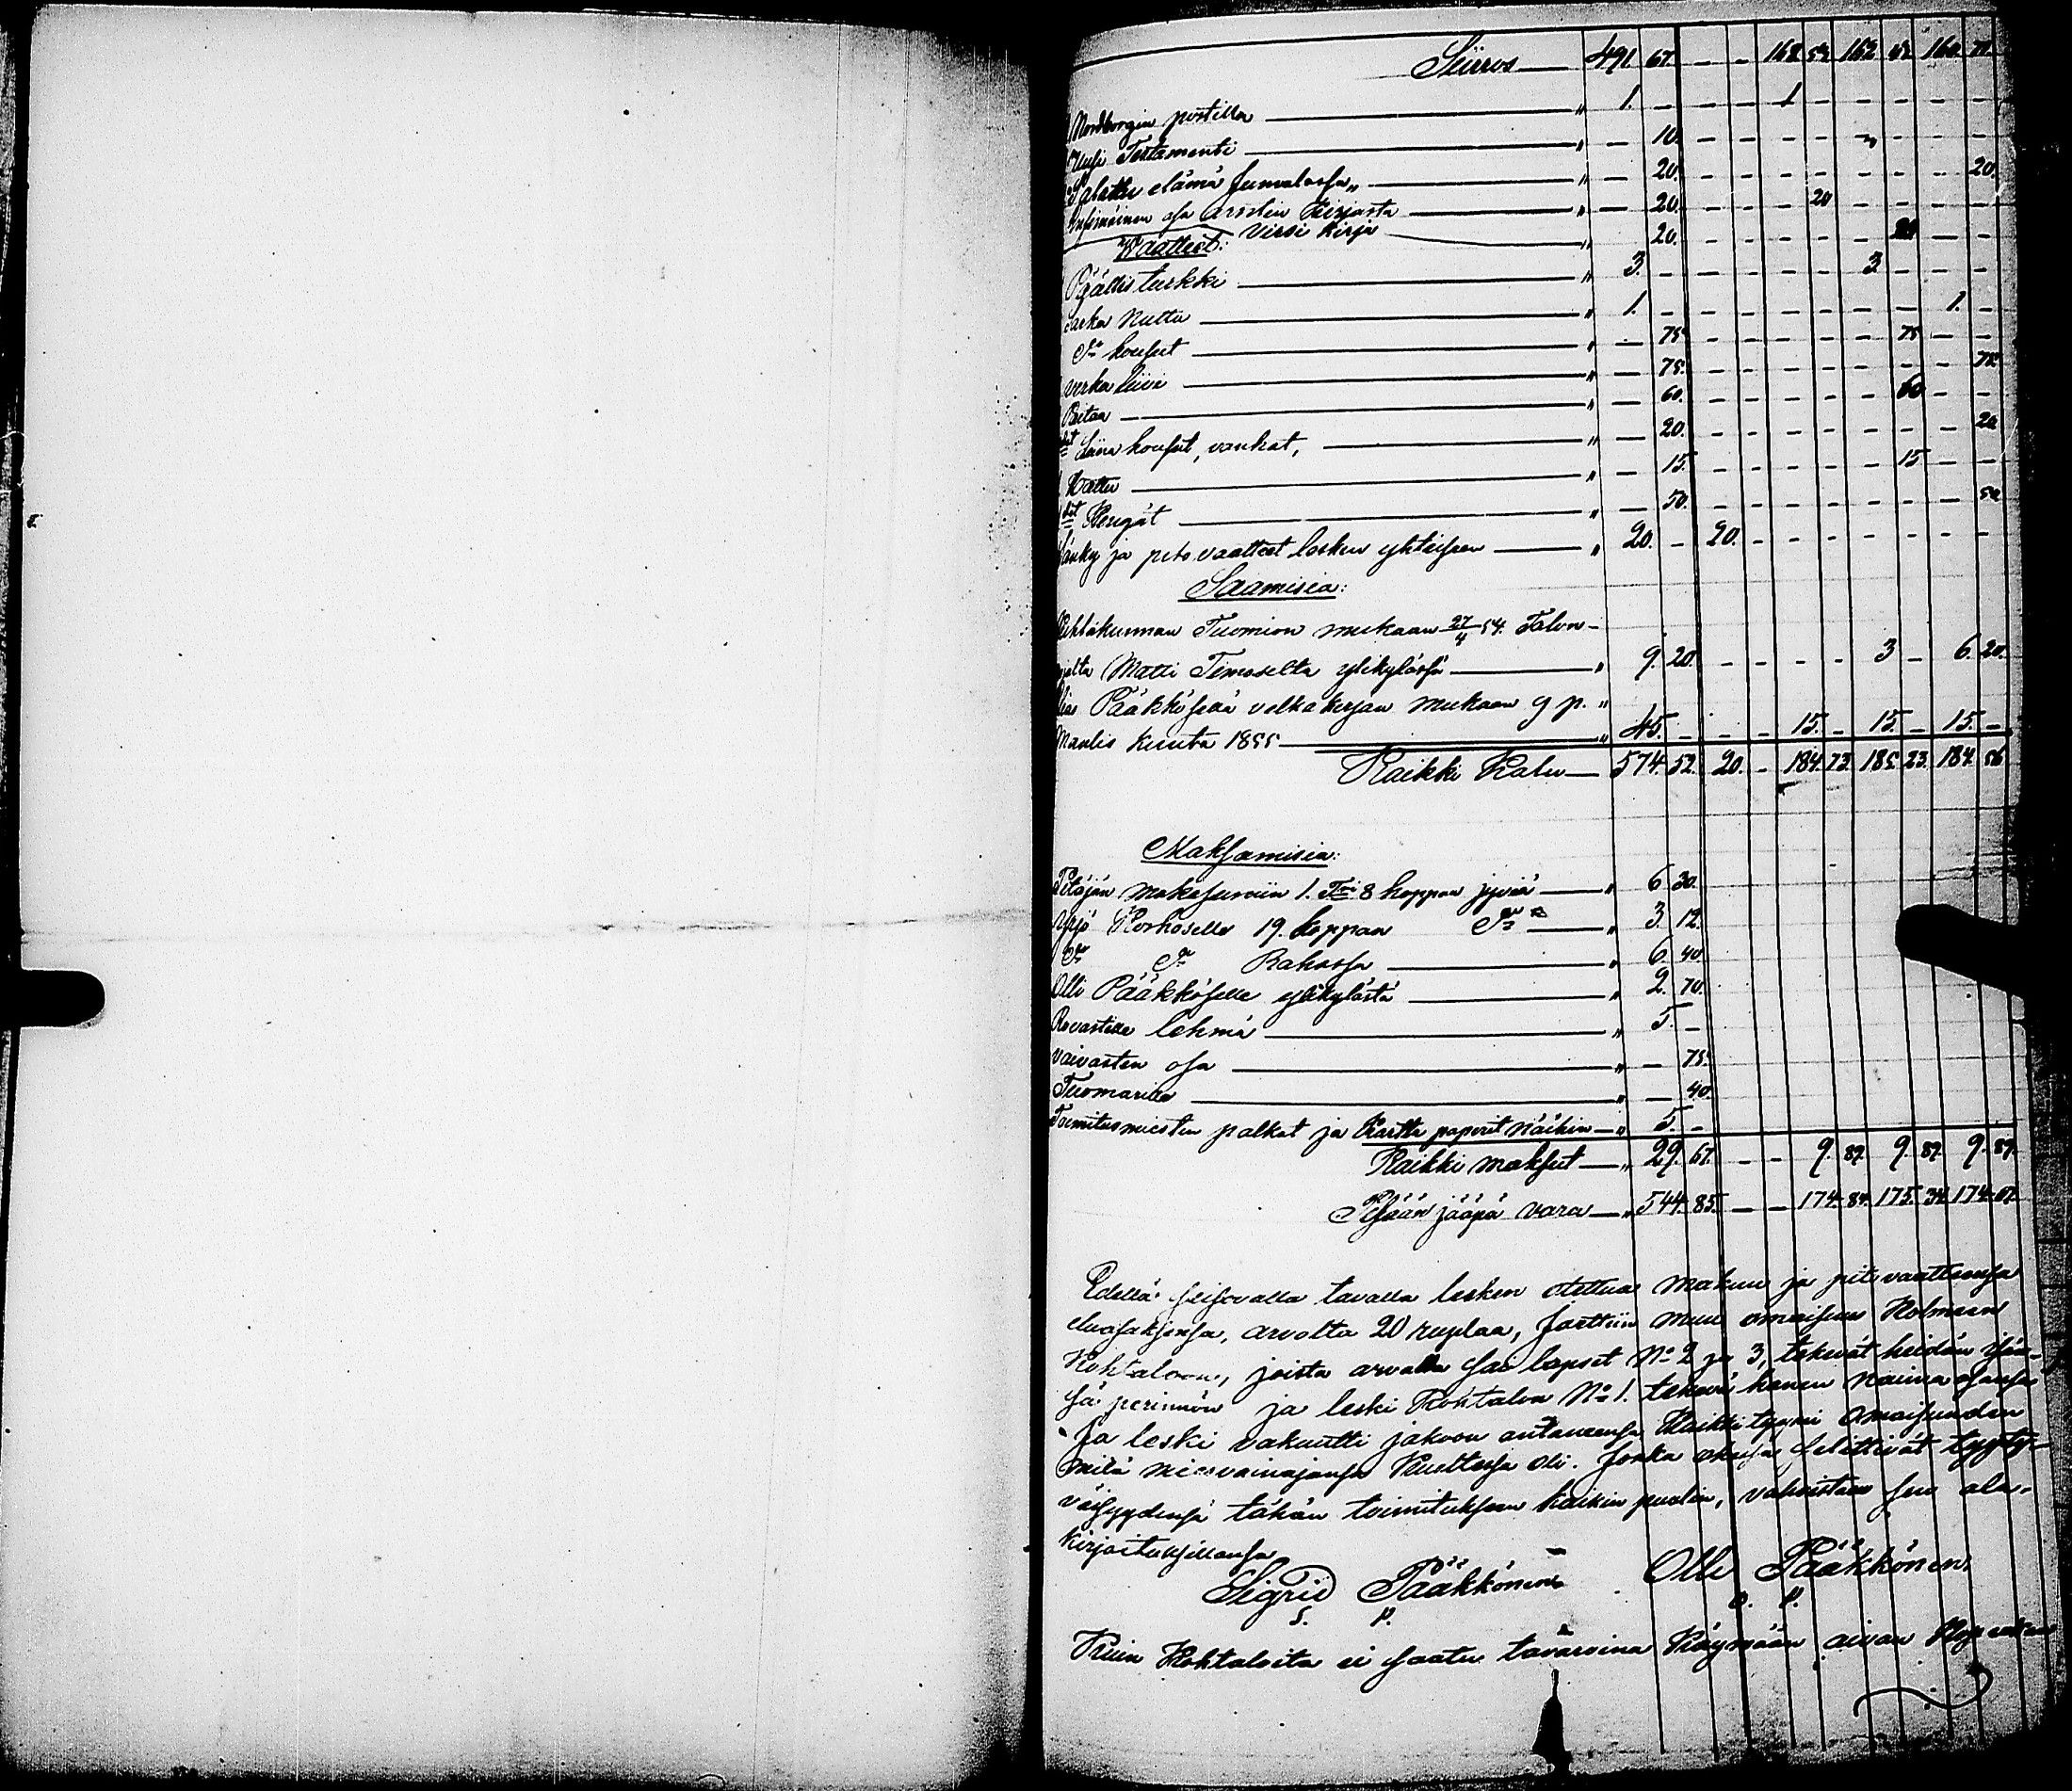 Siirros — 491 67. — — 168 53 162 52 160. 71.
Nordborgin postilla — „ 1. — — — 1 — — — — —
Uusi Testamenti — „ — 10. — — — — — — —
elämä Jumalassa „ — „ — 20. — — — — — — — 20.
osa arstin kirjasta — „ — 20. — — — 20 — — — —
Waatteet: Virsi kirja — „ 20. — — — — — 20 — —
Päällis turkki — „ 3. — — — — — 3. — — —
Sarka Nuttu — „ 1. — — — — — — — 1. —
Do housut — „ — 75. — — — — — 75 — —
verka liivi — „ — 75. — — — — — — — 75.
Paitaa — „ — 60. — — — — — 60 — —
Liina housut, vanhat, — „ — 20. — — — — — — — 20
Hattu — „ — 15. — — — — — 15 — —
Kengät — „ — 50. — — — — — — — 50
Sänky ja pito vaatteet lesken yhteiseen — „ 20. — 20. — — — — — — —
Saamisia:
Kihlakunnan Tuomion mukaan 27/4 54. Talon-
Matti Timoselta ylikylässä — „ 9. 20. — — — — 3 — 6. 20.
Pääkkösellä velkakirjan mukaan 9 p. „
Maalis kuuta 1855 — „ 45. — — — 15. — 15. — 15. —
Kaikki Kalu — 574. 52. 20. — 184. 73. 185. 23. 184. 56
Maksamisia:
Pitäjän makasuniin 1. Tri 8 kappaa jyviä — „ 6 30.
Yrjö Korhoselle 19. kappaa Do — „ 3. 12.
Do Do Rahassa — „ 6. 40
Olli Pääkköselle ylikylästä — „ 2. 70.
Rovastille lehmä — „ 5. —
vaivasten osa — „ — 75.
Tuomarille — „ — 40.
Toimitusmiesten palkat ja Kartta paperit näihin — „ 5. —
Kaikki maksut — „ 29. 67. — — 9. 89. 9. 89. 9. 89.
Pesään jääpä vara — „ 544. 85. — — 174. 84. 175. 34. 174. 67.
Edellä seisovalla tavalla lesken otettua makuu ja pitovaatteensa
arvolta 20 ruplaa, Jaettiin muu omaisuus Kolmeen
Kohtaloon, joista arvalla sai lapset No 2 ja 3, tekevät heidän isän-
sä perinnön ja leski Kohtalon No 1. tekevä hänen naima osansa
Ja leski vakuutti jakoon antaneensa Kaikki tyyni omaisuuden
mitä miesvainajansa Kuoltessa oli. Jonka selittivät tyyty-
väisyydensä tähän toimitukseen kaikin puolin, vahvistaa sen alle-
kirjoituksillansa
Sigrid Pääkkönen Olli Pääkkönen
S. P. O. P.
Kuin Kohtaloita ei saatu tavaroina Käymään aivan